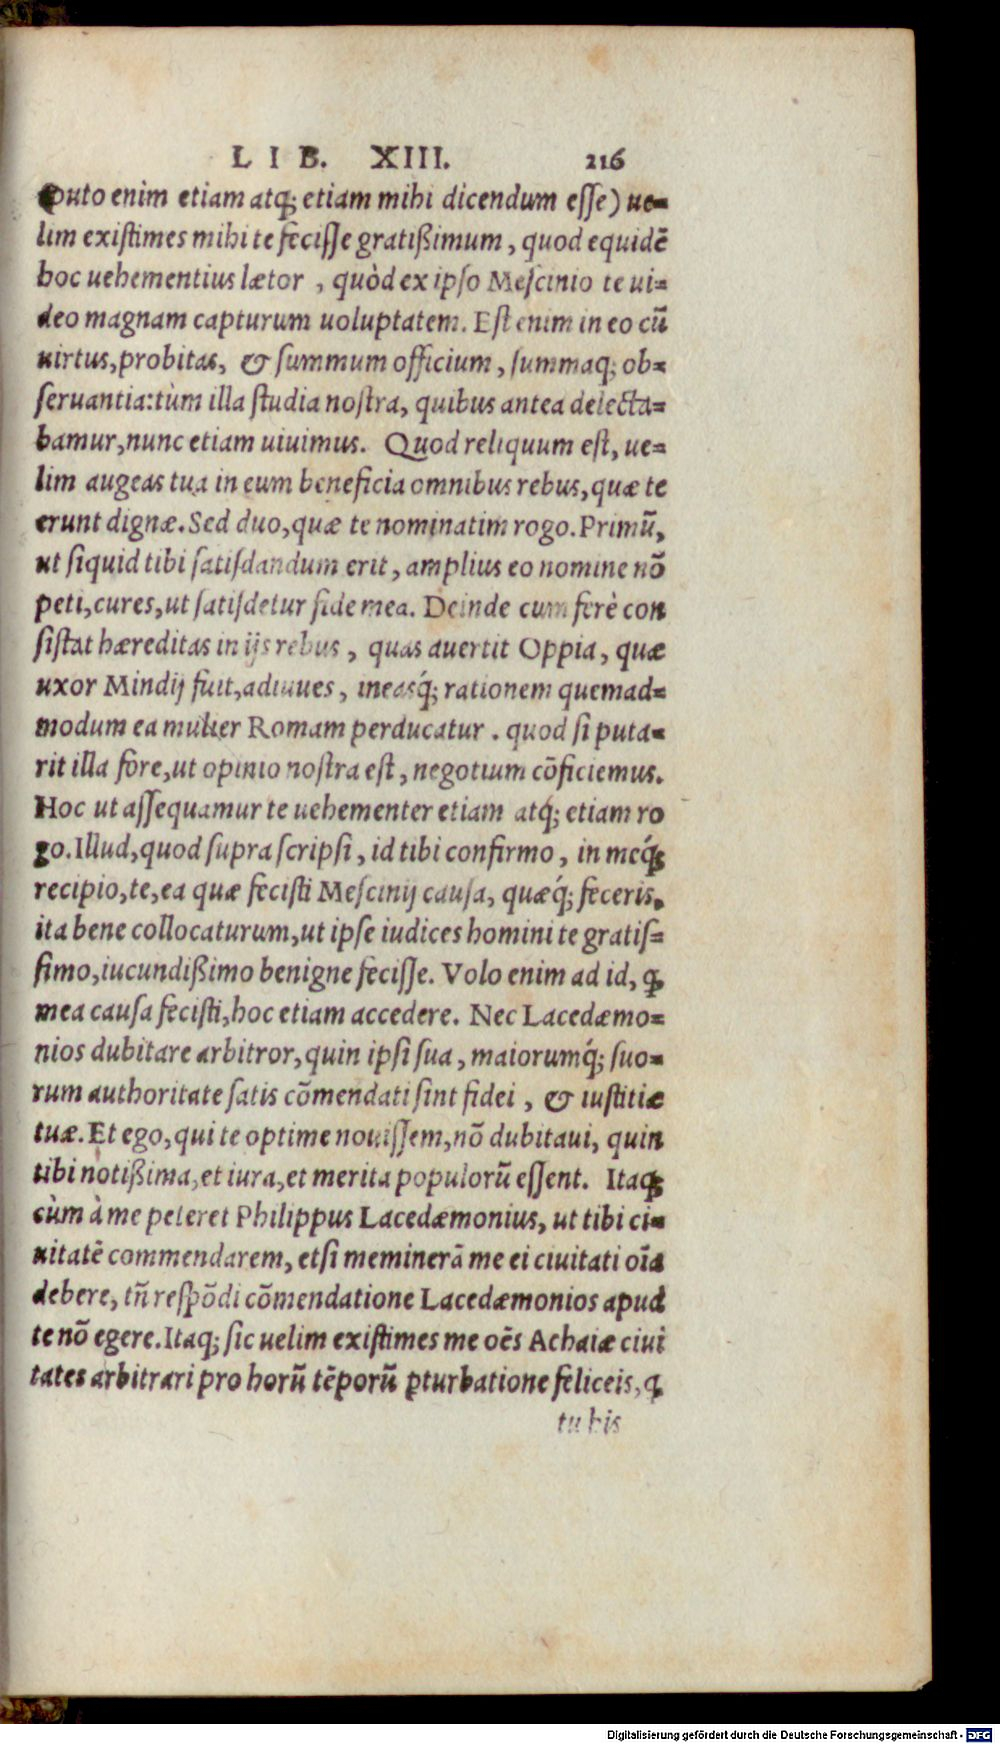 LIB. XIII. 216
puto enim etiam atq; etiam mihi dicendum esse) ue=
lim existimes mihi te fecisse gratißimum, quod equidē
hoc uehementius lætor, quòd ex ipso Mescinio te ui=
deo magnam capturum uoluptatem. Est enim in eo cū
uirtus, probitas, & summum officium, summaq; ob=
seruantia: tùm illa studia nostra, quibus antea delecta=
bamur, nunc etiam uiuimus. Quod reliquum est, ue=
lim augeas tua in eum beneficia omnibus rebus, quæ te
erunt dignæ. Sed duo, quæ te nominatim rogo. Primū,
ut siquid tibi satisdandum erit, amplius eo nomine nō
peti, cures, ut satisdetur fide mea. Deinde cum ferè con
sistat hæreditas in ijs rebus, quas auertit Oppia, quæ
uxor Mindij fuit, adiuues, ineasq́; rationem quemad=
modum ea mulier Romam perducatur. quod si puta=
rit illa fore, ut opinio nostra est, negotium cōficiemus.
Hoc ut assequamur te uehementer etiam atq́; etiam ro
go. Illud, quod supra scripsi, id tibi confirmo, in meq́;
recipio, te, ea quæ fecisti Mescinij causa, quæq́; feceris,
ita bene collocaturum, ut ipse iudices homini te gratis=
simo, iucundißimo benigne fecisse. Volo enim ad id, ꝙ
mea causa fecisti, hoc etiam accedere. Nec Lacedæmo=
nios dubitare arbitror, quin ipsi sua, maiorumq́; suo=
rum authoritate satis cōmendati sint fidei, & iustitiæ
tuæ. Et ego, qui te optime nouissem, nō dubitaui, quin
tibi notißima, et iura, et merita populorū essent. Itaq;
cùm à me peteret Philippus Lacedæmonius, ut tibi ci=
uitatē commendarem, etsi meminerā me ei ciuitati oīa
debere, tñ respōdi cōmendatione Lacedæmonios apud
te nō egere. Itaq; sic uelim existimes me oēs Achaiæ ciui
tates arbitrari pro horū tēporū ꝑturbatione feliceis, ꝙ
tu his
Digitalisierung gefördert durch die Deutsche Forschungsgemeinschaft - DFG